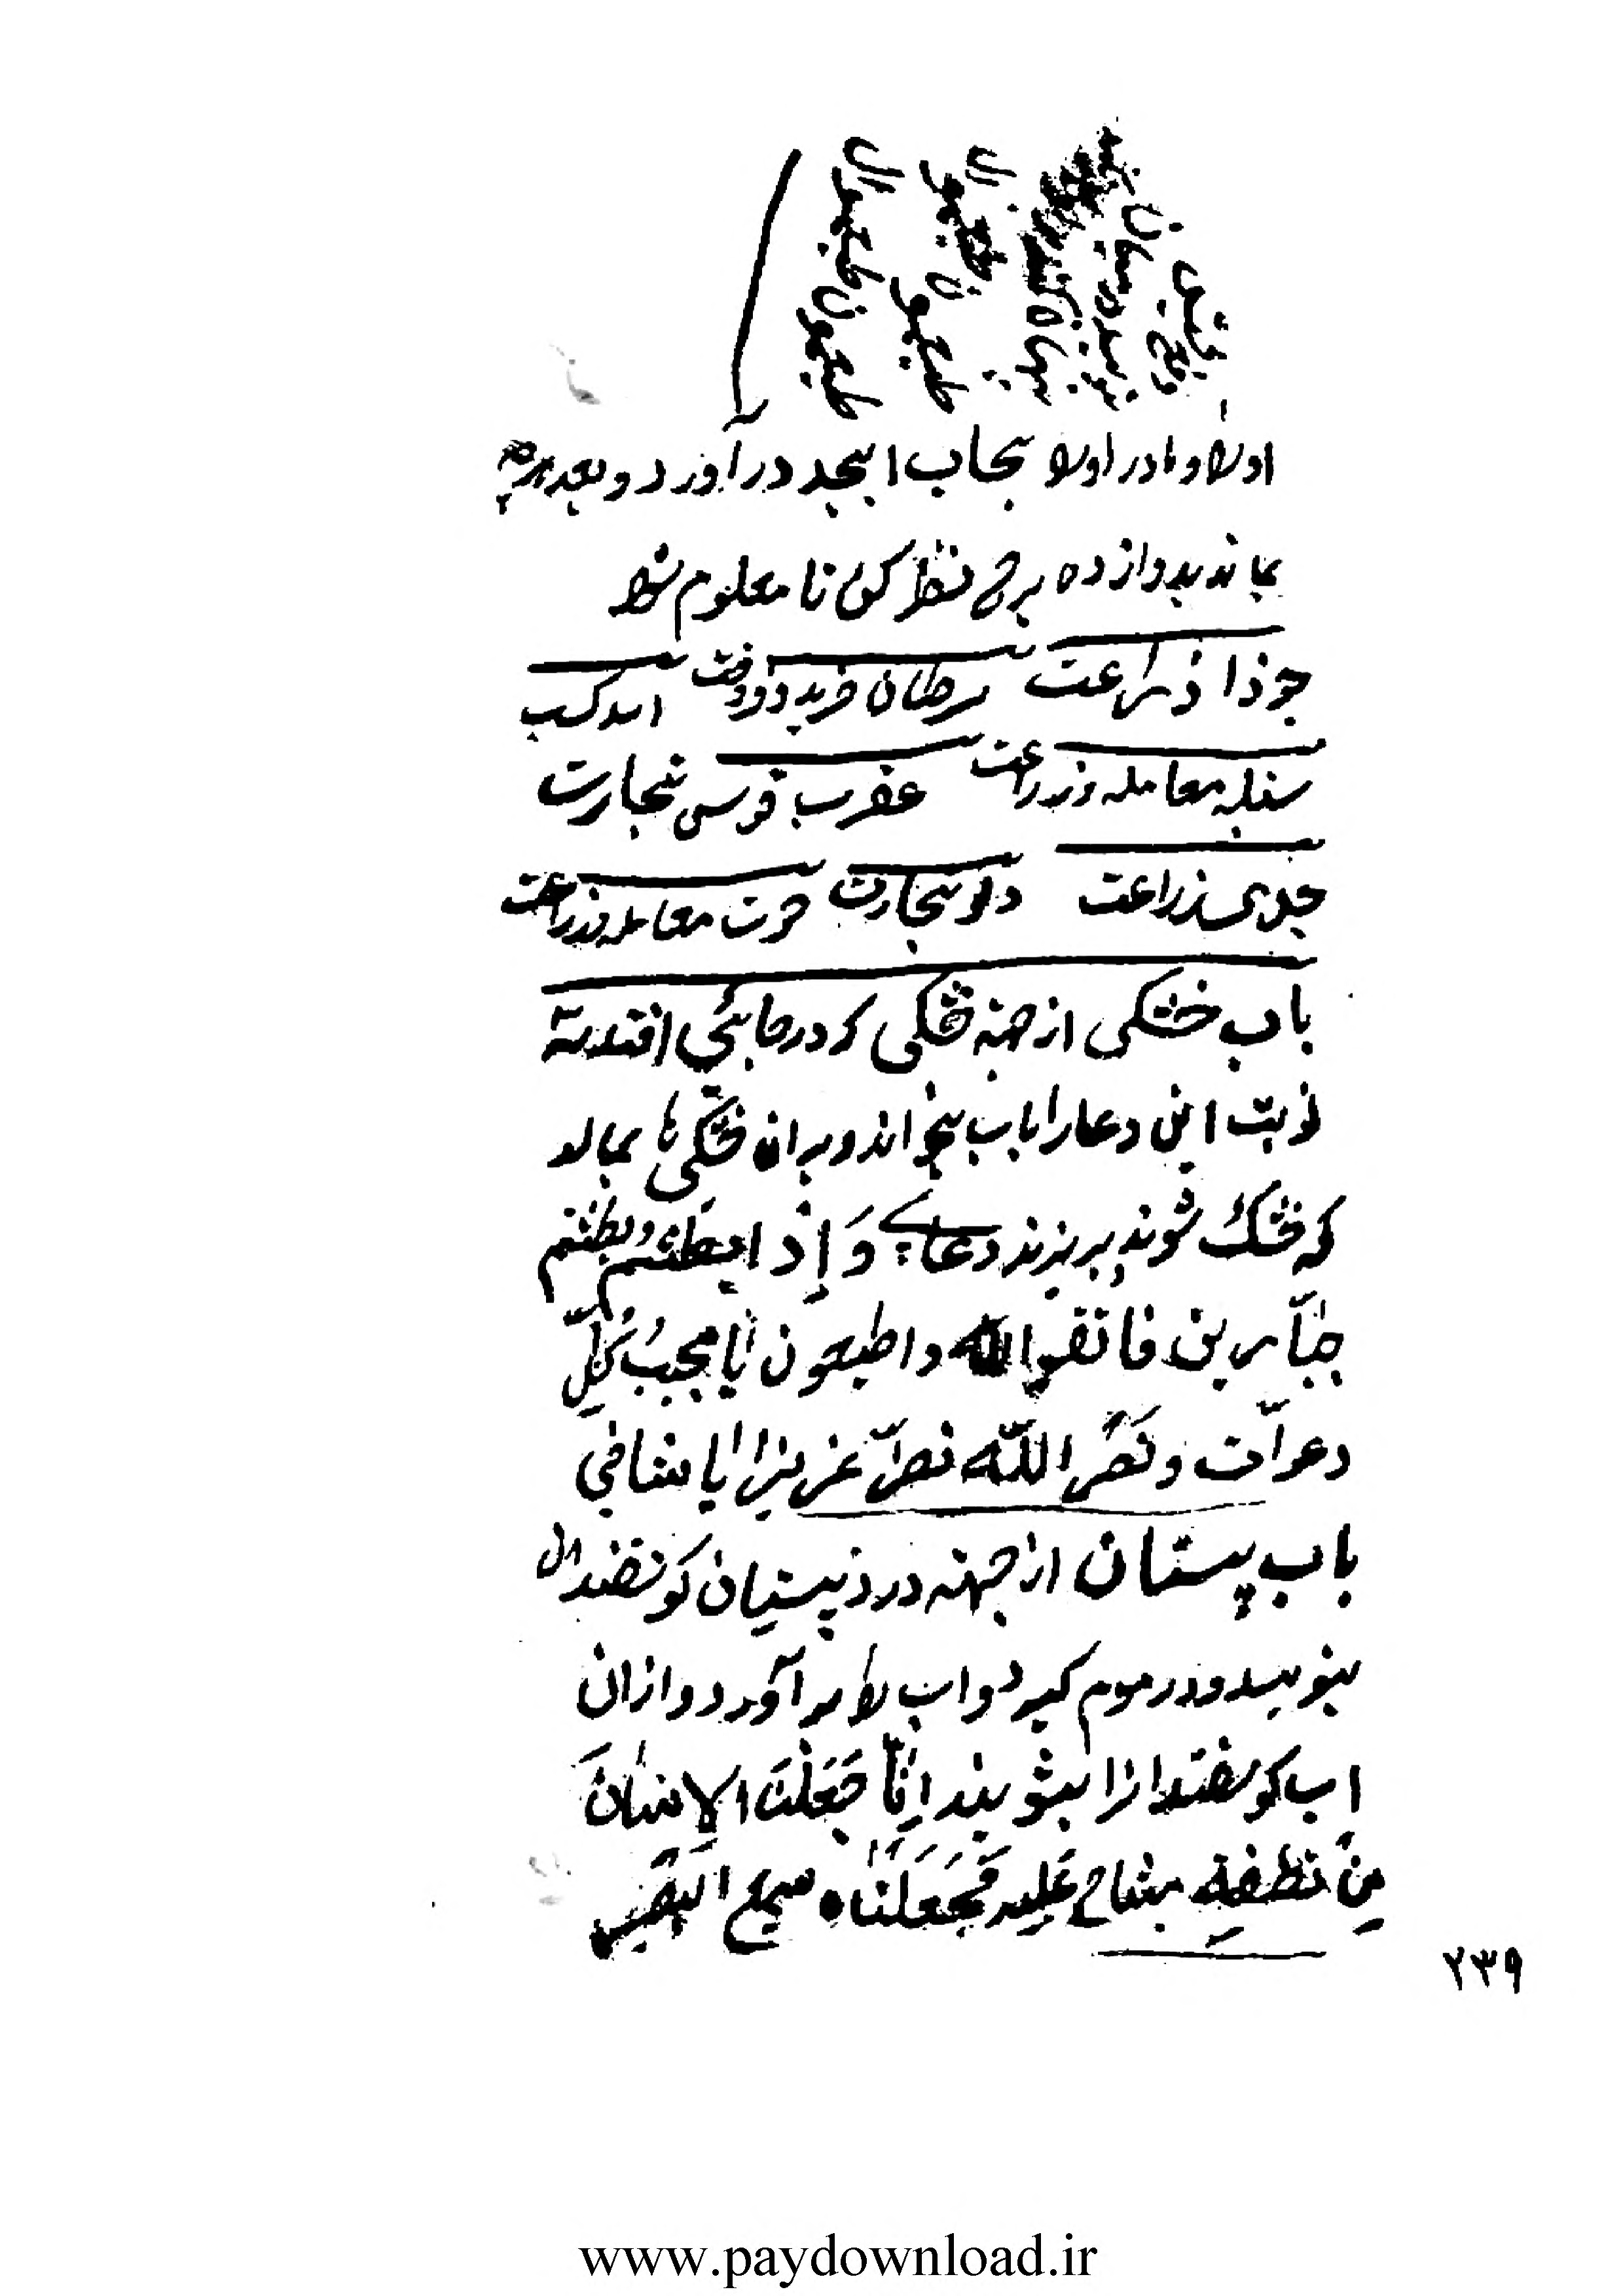 او را و مادر او را بحساب ابجد در آورد و بعد هرچه
بماند بدوازده برج نظر کن تا معلوم شود
جوذا ذراعت سرطان خرید و فروخت اسد کسب
سنبله معامله و زراعت عقرب قوس تجارت
جدی زراعت دلو تجارت حوت معامله و زراعت
باب خشکی از جهته خشکی که در جائی افتد سه
نوبت این دعا را باب بخواند و بران خشکی ها بمالد
که خشک شوند بریزند دعا وَإِذا بطشتم بطشتم
جبّارین فاتقوا الله واطیعون یا مجیبُ کُلّ
دعوات و نَصر الله نصرًا عزیزا یا شافی
باب پستان از جهته درد پستان کوسفند ان
بنویسد و در موم کیرد و اب را بر آورد و ازان
اب کوسفندانرا بشویند اِنّا جَعَلْنَا الاِنسَانَ
مِن نطفةٍ مشاج علیه فَجَعَلنَاه سمیع البصیر
۲۳۹
www.paydownload.ir